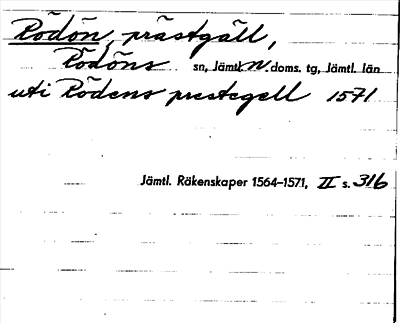 Rödön, prästgäll,
Rödöns sn, Jämtl. n. doms. tg, Jämtl. län
uti Rödens prestegell 1571
Jämtl. Räkenskaper 1564–1571, II s. 316